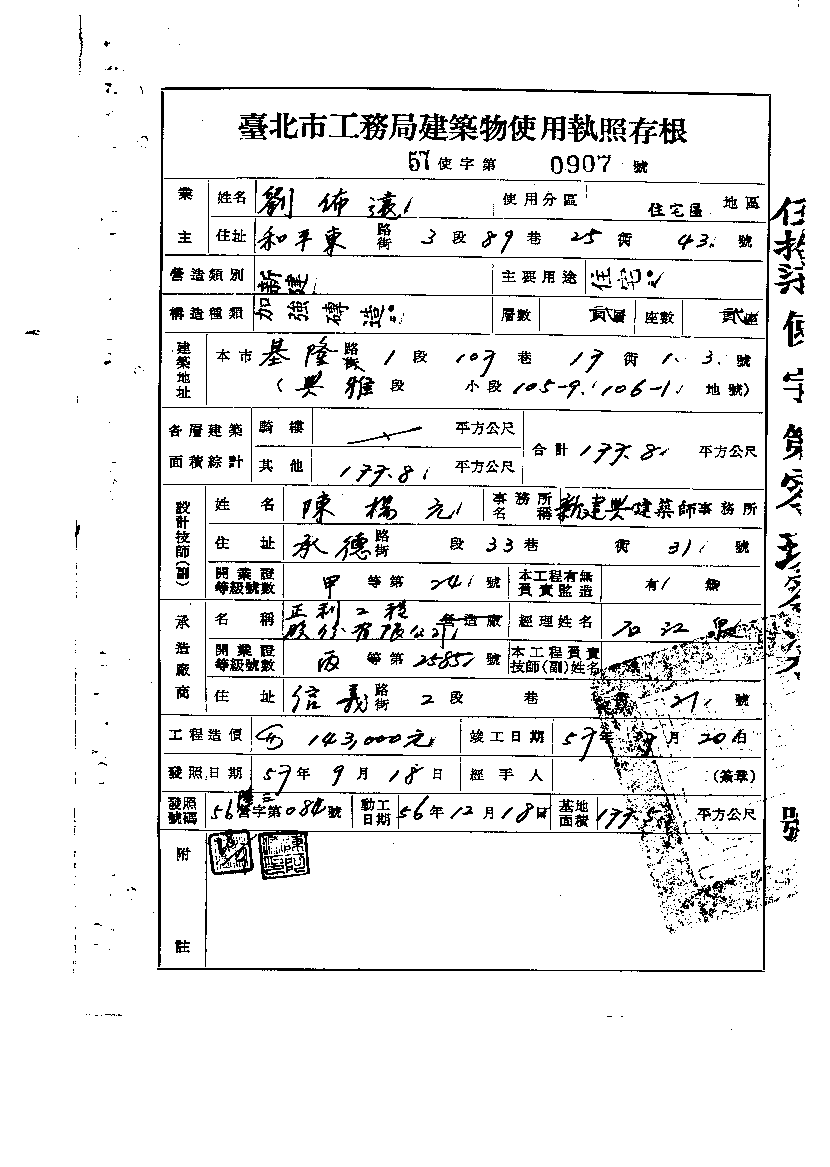 臺北市工務局建築物使用執照存根
57使字第 0907 號
業主 姓名 劉佈遠 使用分區 住宅區 地區
住址 和平東路街 3段89巷25街43號
營造類別 新建 主要用途 住宅
構造種類 加強磚造 層數 貳層 座數 貳座
建築地址 本市基隆路街1段107巷17街1.3.號
(興雅段 小段105-9.106-1 地號)
各層建築面積綜計 騎樓 平方公尺 合計177.81平方公尺
其他 177.81 平方公尺
設計技師(副) 姓名 陳楊元 事務所名稱 新建興建築師事務所
住址 承德路街 段33巷 街31號
開業證等級號數 甲等第241號 本工程有無負責監造 有 無
承造廠商 名稱 正利工程股份有限公司 營造廠 經理姓名 石江
開業證等級號數 丙等第2585號 本工程負責技師(副)姓名
住址 信義路街2段 巷 21號
工程造價 143,000元 竣工日期 57年 月20日
發照日期 57年9月18日 經手人 (簽章)
發照號碼 56營字第084號 動工日期 56年12月18日 基地面積 177.5 平方公尺
附註
伍拾柒使字第零玖零 號